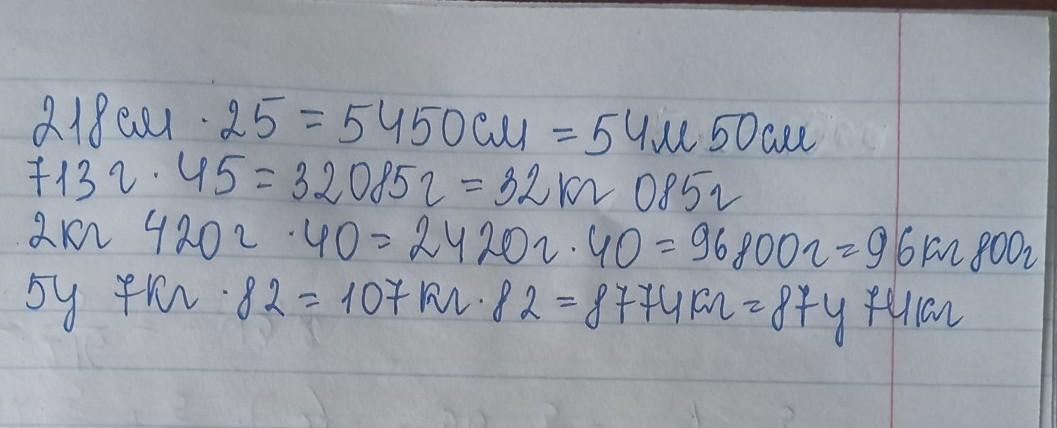 218 см · 25 = 5450 см = 54 м 50 см
713 г · 45 = 32085 г = 32 кг 085 г
2 кг 420 г · 40 = 2420 г · 40 = 96800 г = 96 кг 800 г
5 ц 7 кг · 82 = 107 кг · 82 = 8774 кг = 87 ц 74 кг